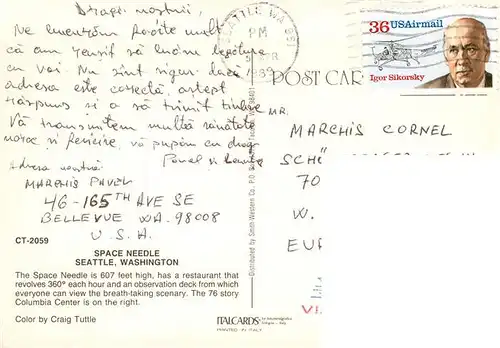 Dragii noștrii,
Ne bucurăm foarte mult
că am reușit să luăm legătura
cu voi. Nu sînt sigur dacă
adresa este corectă, aștept
răspuns și a să trimit
Vă transmitem multă sănătate
noroc și fericire, vă pupăm cu drag
Pavel și
Adresa noastră:
MARCHIS PAVEL
46-165TH AVE SE
BELLEVUE WA. 98008
U.S.A.
CT-2059
SPACE NEEDLE
SEATTLE, WASHINGTON
The Space Needle is 607 feet high, has a restaurant that
revolves 360° each hour and an observation deck from which
everyone can view the breath-taking scenary. The 76 story
Columbia Center is on the right.
Color by Craig Tuttle
ITALCARDS
PRINTED IN ITALY
Distributed by Smith-Western Co., P.O.
SEATTLE, WA
PM
36 USAirmail
Igor Sikorsky
POST CAR
MR.
MARCHIS CORNEL
SCHÖ
70
W.
EUR